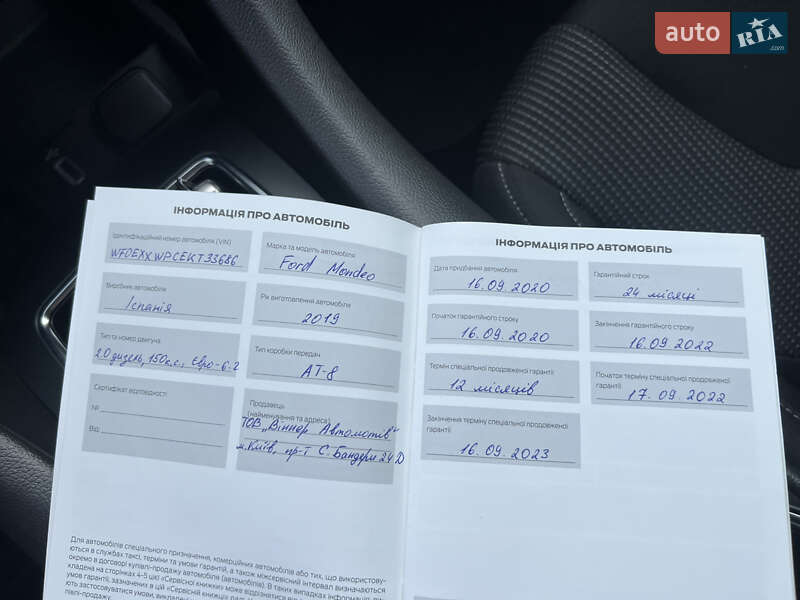 auto RIA .com
ІНФОРМАЦІЯ ПРО АВТОМОБІЛЬ
Ідентифікаційний номер автомобіля (VIN)
WF0EXXWPCEKT33686
Марка та модель автомобіля
Ford Mondeo
Виробник автомобіля
Іспанія
Рік виготовлення автомобіля
2019
Тип та номер двигуна
2.0 дизель, 150к.с., Євро-6.2
Тип коробки передач
АТ-8
Сертифікат відповідності
№
Від
Продавець
(найменування та адреса)
ТОВ „Віннер Автомотів"
м.Київ, пр-т С. Бандери 24D
Для автомобілів спеціального призначення, комерційних автомобілів або тих, що використову-
ються в службах таксі, терміни та умови гарантії, а також міжсервісний інтервал визначаються
окремо в договорі купівлі-продажу автомобіля (автомобілів). В таких випадках інформація,
кладена на сторінках 4-5 цієї «Сервісної книжки» може відрізнятися від
умов гарантії, зазначених в цій «Сервісній книжці»
ють застосовуватися умови,
півлі-продажу.
ІНФОРМАЦІЯ ПРО АВТОМОБІЛЬ
Дата придбання автомобіля
16.09.2020
Гарантійний строк
24 місяці
Початок гарантійного строку
16.09.2020
Закінчення гарантійного строку
16.09.2022
Термін спеціальної продовженої гарантії
12 місяців
Початок терміну спеціальної продовженої
гарантії
17.09.2022
Закінчення терміну спеціальної продовженої
гарантії
16.09.2023